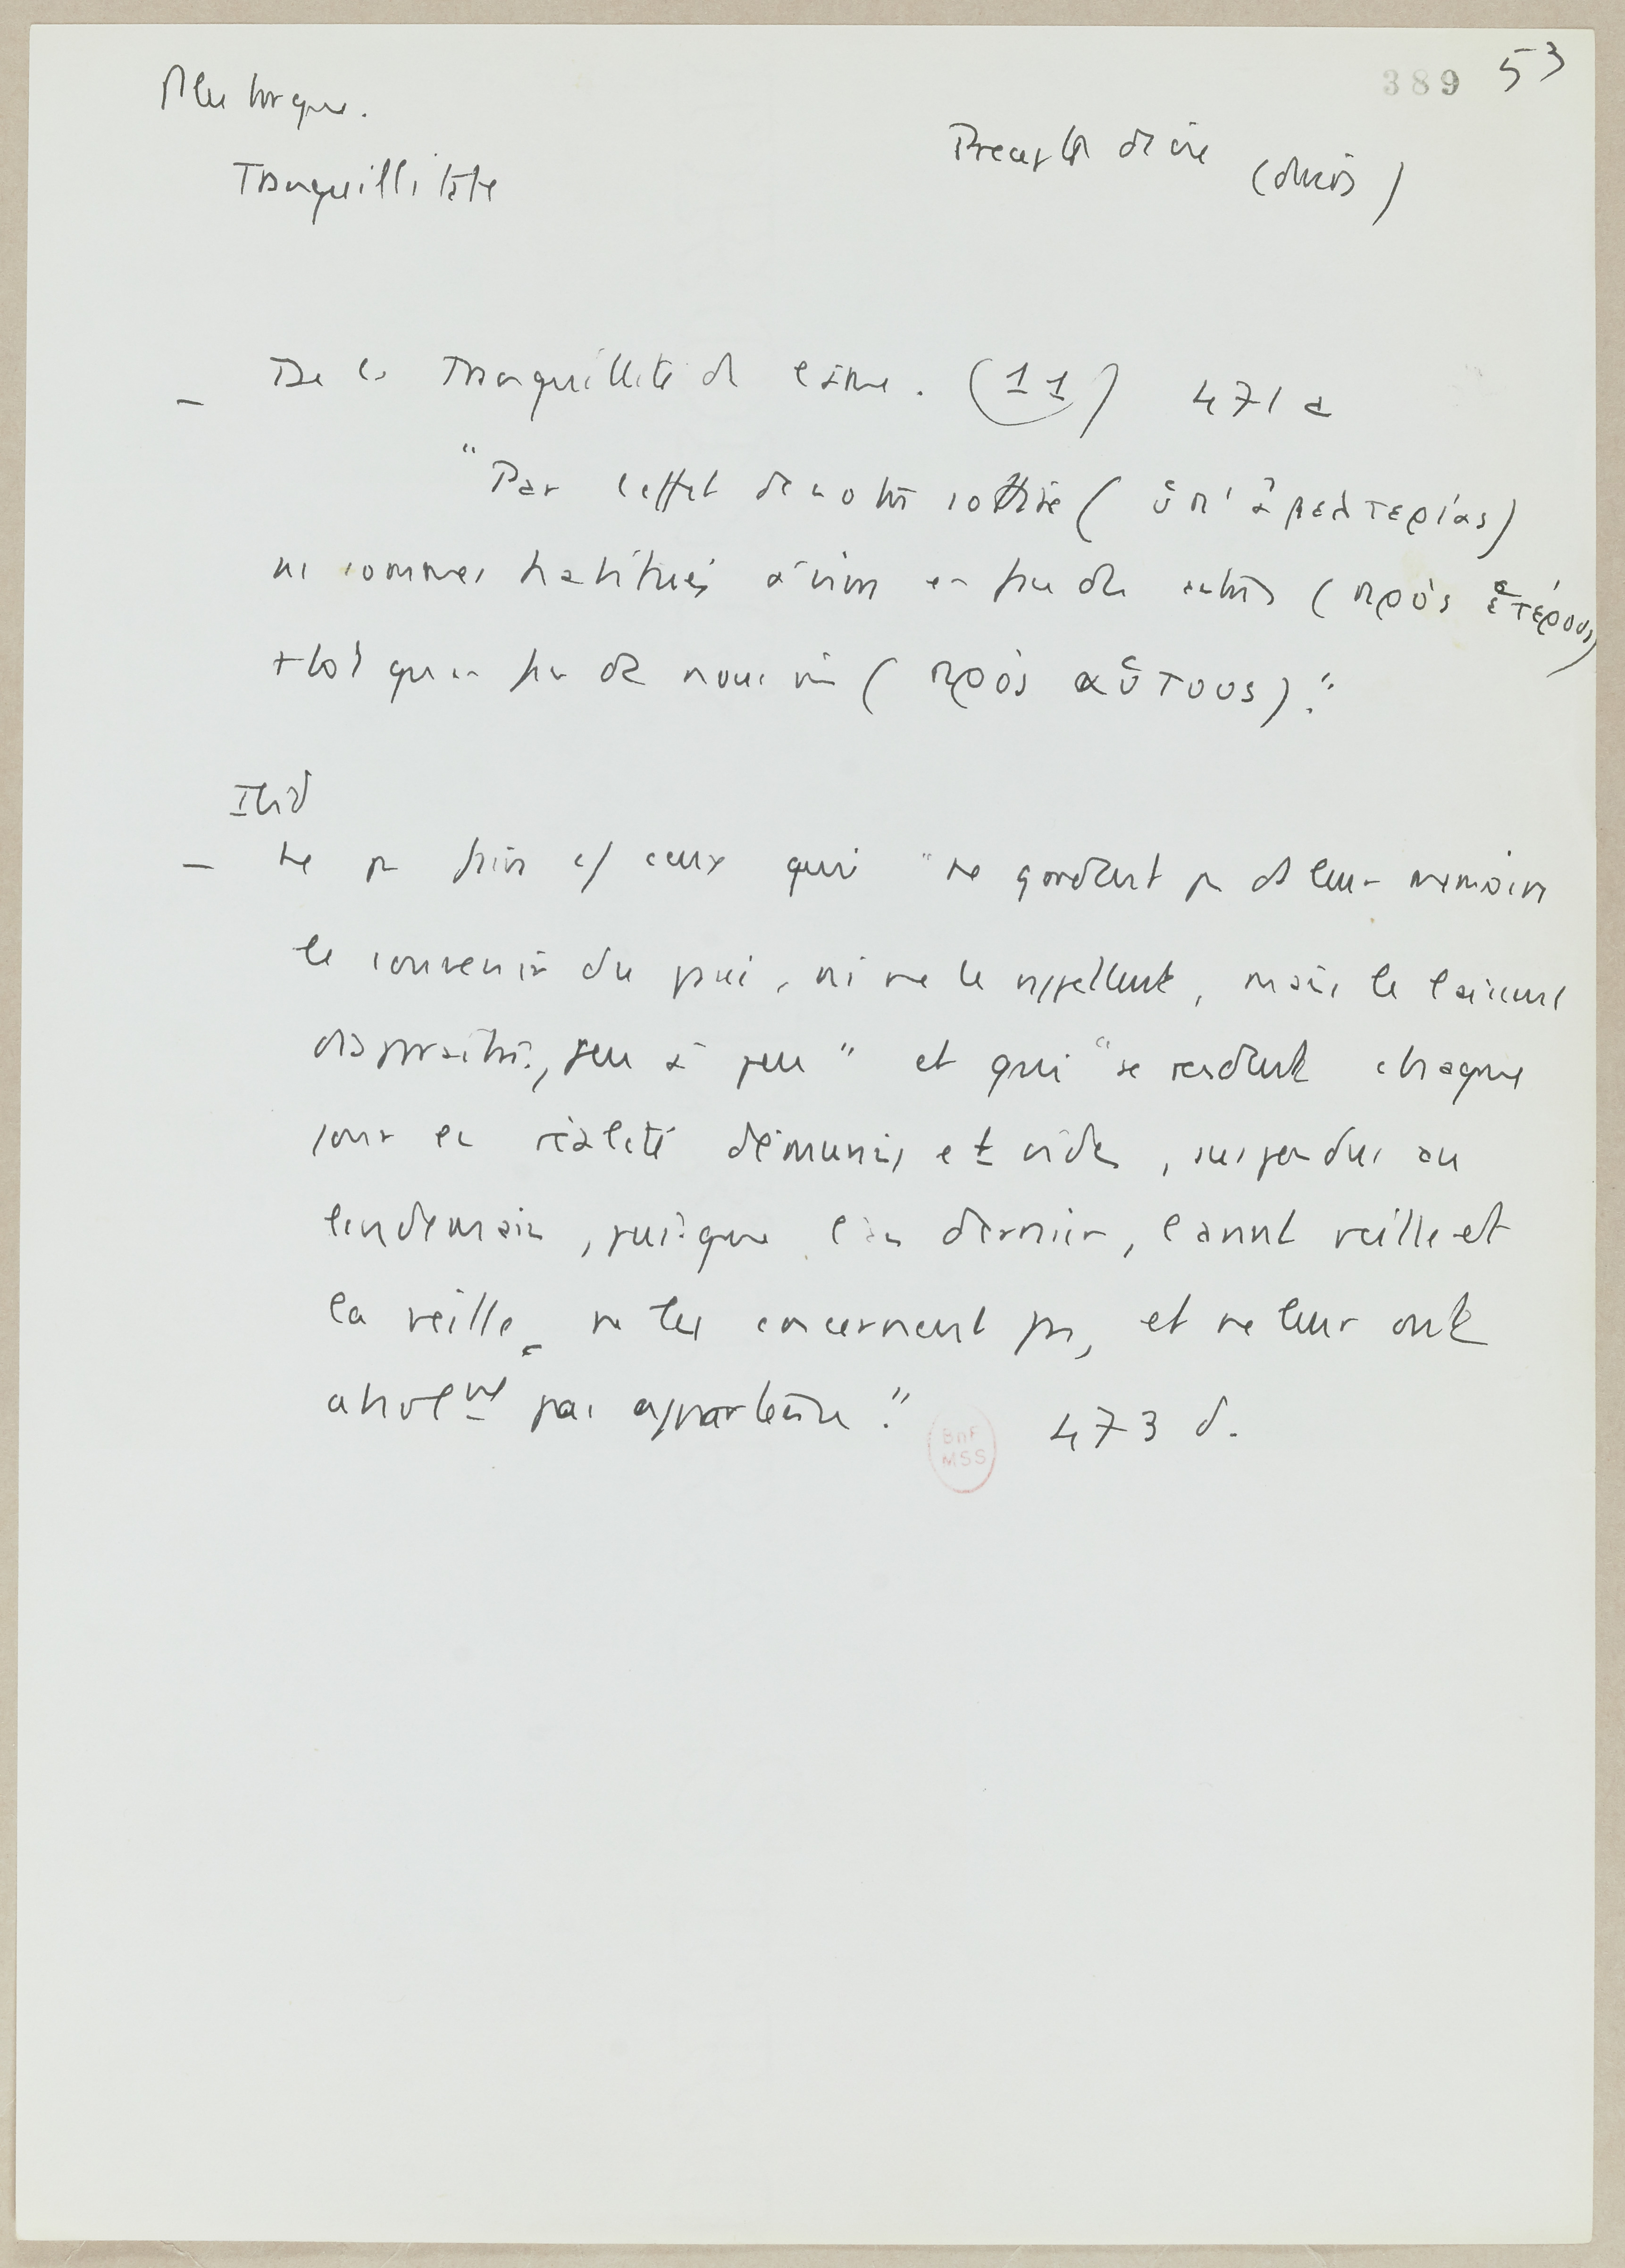 389 53
Plutarque.
Preceptes de vie (divers)
Tranquillitate
_ De la Tranquillité de l'âme. (11) 471 a
"Par l'effet de notre sottise (ὑπ' ἀβελτερίας)
ns sommes habitués à vivre en fce des autres (πρὸς ἑτέρους)
+tôt qu'en fce de nous m (πρὸς αὑτους)."
Ibid
_ Ne p faire c/ ceux qui "ne gardent p ds leur mémoire
le souvenir du passé, ni ne le rappellent, mais le laissent
disparaître, peu à peu" et qui "se rendent chaque
jour en réalité démunis et vides, suspendus au
lendemain, puisque l'an dernier, l'avant veille et
la veille, ne les concernent pas, et ne leur ont
absolmt pas appartenu." 473 d.
BnF
MSS